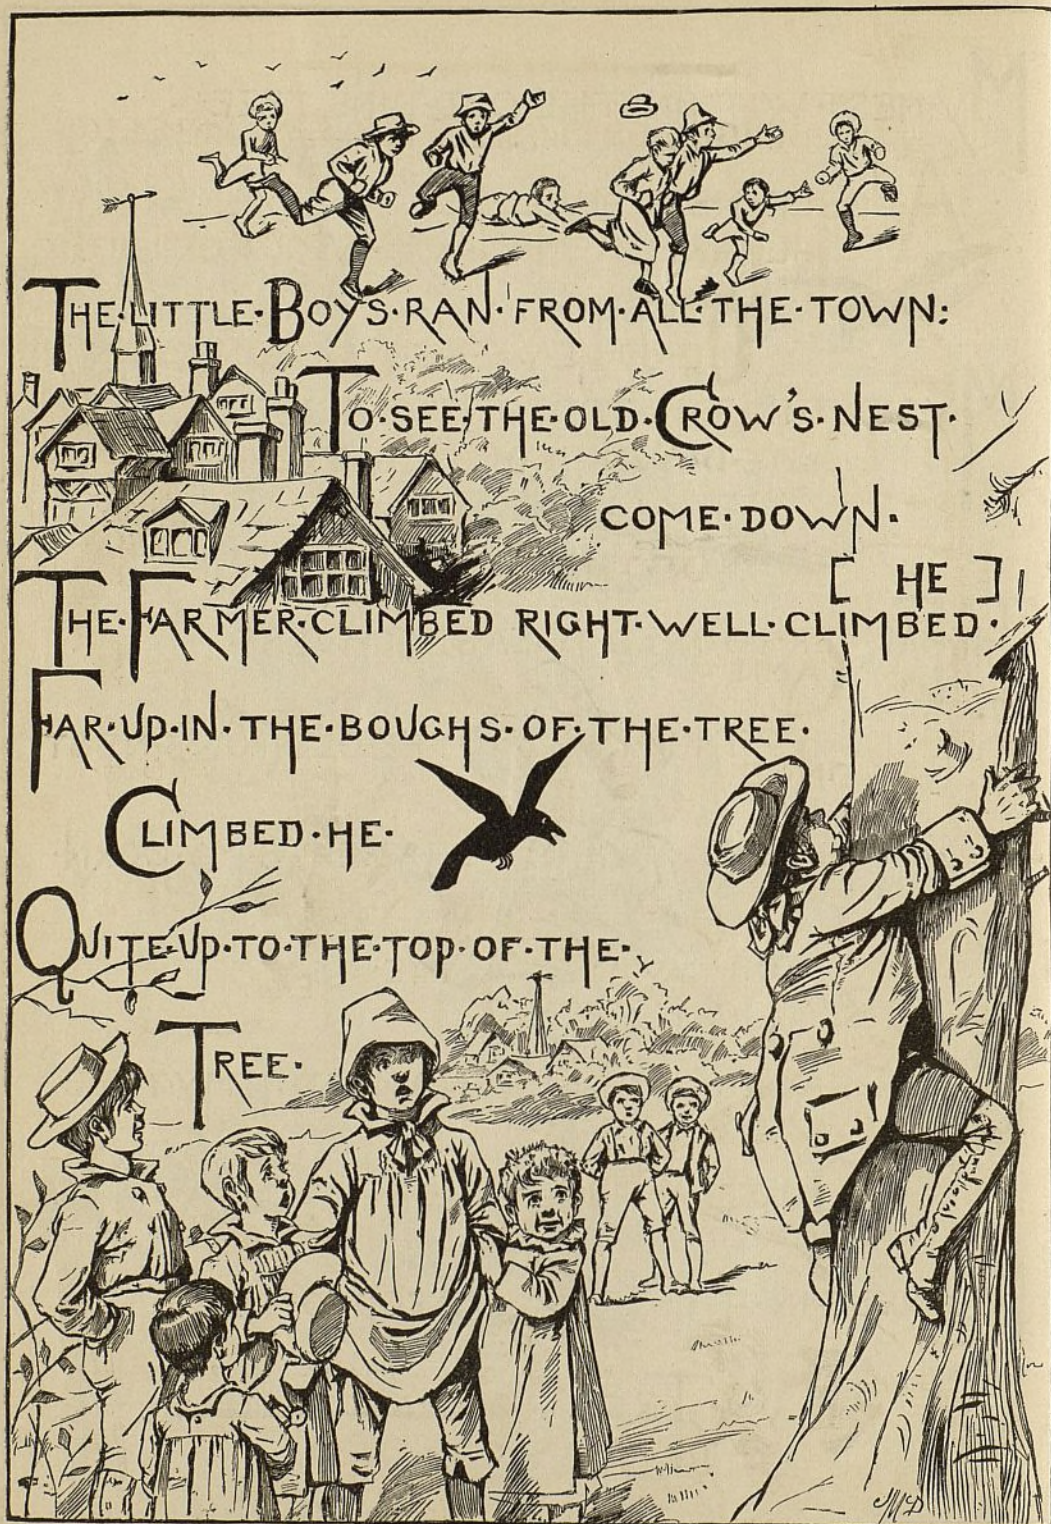 THE·LITTLE·BOYS·RAN·FROM·ALL·THE·TOWN:
TO·SEE·THE·OLD·CROW'S·NEST·
COME·DOWN.
[ HE ]
THE·FARMER·CLIMBED RIGHT·WELL·CLIMBED·
FAR·UP·IN·THE·BOUGHS·OF·THE·TREE.
CLIMBED·HE·
QUITE·UP·TO·THE·TOP·OF·THE·
TREE.
JMcD